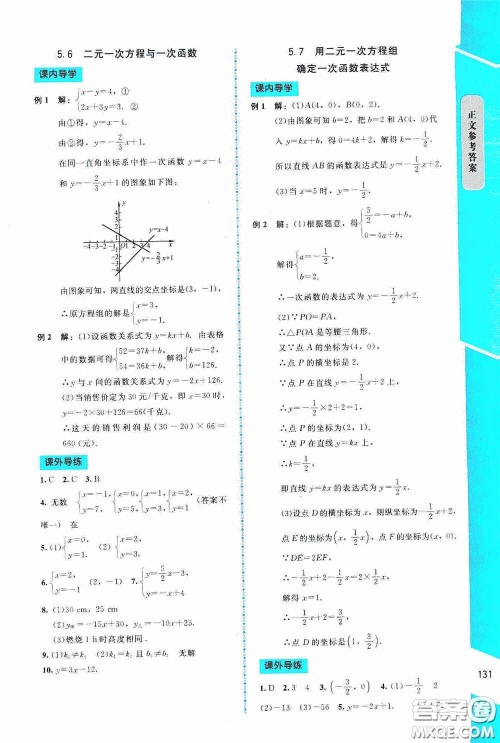 5.6 二元一次方程与一次函数
课内导学
例1 解：{x-y=4, ①
2x+3y=3. ②
由①得：y=x-4.
由②得：y=-2/3x+1.
在同一直角坐标系中作一次函数 y=x-4
和 y=-2/3x+1 的图象如下图：
y
y=x-4
x
y=-2/3x+1
由图象可知，两直线的交点坐标是(3，-1)，
∴原方程组的解是{x=3,
y=-1.
例2 解：(1)设函数关系式为 y=kx+b. 由表格
中的数据可得{52=37k+b,
54=36k+b, 解得{k=-2,
b=126.
∴y 与 x 间的函数关系式为 y=-2x+126.
(2)当销售价定为 30 元/千克，即 x=30 时，
y=-2×30+126=66(千克).
∴这天的销售利润是(30-20)×66=
660(元).
课外导练
1. C 2. C 3. B
4. 无数 {x=-1,
y=7, {x=0,
y=5, {x=1,
y=3 (答案不
唯一) 在
5. (1){x=0,
y=1. (2){x=2,
y=1.
6. {x=-2,
y=-1 (2，-1) 7. {y=5/2x-3,
y=-1/2x
8. (1)30 cm，25 cm
(2)y甲=-15x+30，y乙=-10x+25.
(3)燃烧 1 h 时高度相同.
9. (1)k₁≠k₂ (2)k₁=k₂ 且 b₁≠b₂ 无解
10. y=3x-12.
5.7 用二元一次方程组
确定一次函数表达式
课内导学
例1 解：(1)A(4，0)，B(0，2).
(2)由图象可知 b=2，把 b=2 和 A(4，0)代入
y=kx+b，得 0=4k+2，解得 k=-1/2.
所以直线 AB 的函数表达式是 y=-1/2x+2.
(3)当 x=5 时，y=-1/2.
例2 解：(1)根据题意，得{5/2=-a+b,
0=4a+b,
解得{a=-1/2,
b=2.
∴一次函数的表达式为 y=-1/2x+2.
(2)∵PO=PA，
∴△POA 是等腰三角形.
又∵点 A 的坐标为(4，0)，
∴点 P 的横坐标为 2.
∵点 P 在直线 y=-1/2x+2 上，
∴点 P 的坐标为(2，1).
又∵点 P 在直线 y=kx 上，
∴k=1/2，
即直线 l 的表达式为 y=1/2x.
(3)设点 D 的横坐标为 x，则纵坐标为-1/2x
+2，点 E 的坐标为(x，1/2x)，点 F 的坐标为(x，0).
∵DE=2EF，
∴-1/2x+2-1/2x=2×1/2x，
解得 x=1.
∴-1/2x+2=3/2，
∴点 D 的坐标为(1，3/2).
课外导练
1. D 2. 3 4 3. (-3/2，0) 4. (1)-1/2 2
(2)-13 (3)-56 5. y=-2x+1.
正文参考答案
131
答案圈
MXQE.COM